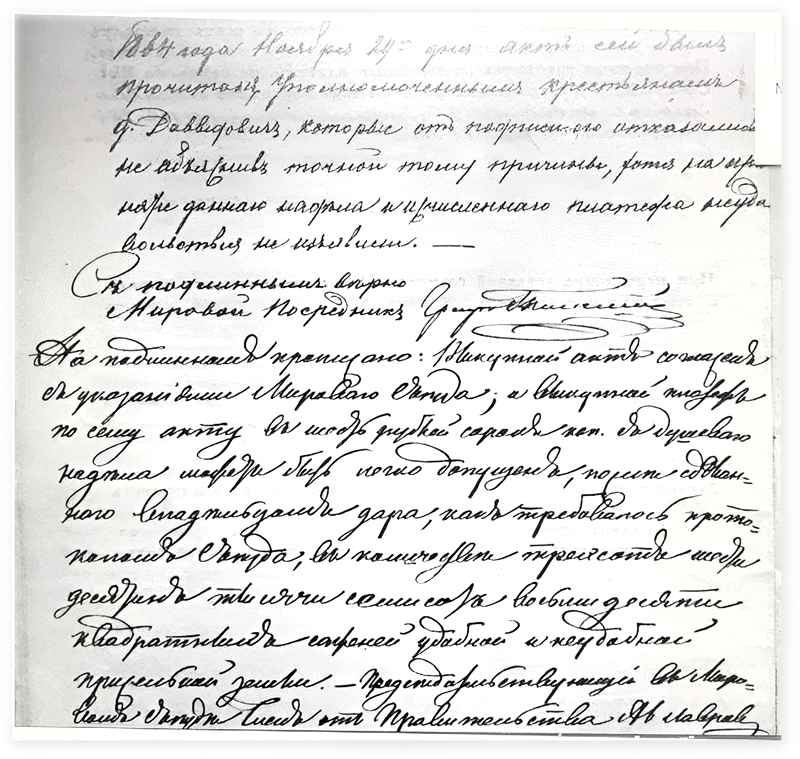 1864 года Ноября 29го дня актъ сей былъ
прочитанъ Уполномоченнымъ крестьянамъ
д. Даввидовичъ, которые отъ подписи его отказались
не объяснивъ точной тому причины, хотя на при-
нятiе даннаго надѣла и изчисленнаго платежа неудо
вольствiя не изъявили. —
Съ подлиннымъ вѣрно
Мировой Посредникъ
На подлинномъ прописано: Выкупной актъ согласенъ
съ указанiями Мироваго Съѣзда; и выкупной платежъ
по сему акту въ шесть рублей сорокъ коп. съ душеваго
надѣла можетъ быть легко допущенъ, послѣ сдѣлан-
наго владѣльцомъ дара, какъ требовалось прото-
коломъ Съѣзда, въ количествѣ трехсотъ шести
десятинъ тысячи семисотъ восьмидесяти
квадратныхъ саженей удобной и неудобной
прирѣзной земли. — Предсѣдательствующiй въ Миро-
вомъ Съѣздѣ Членъ отъ Правительства